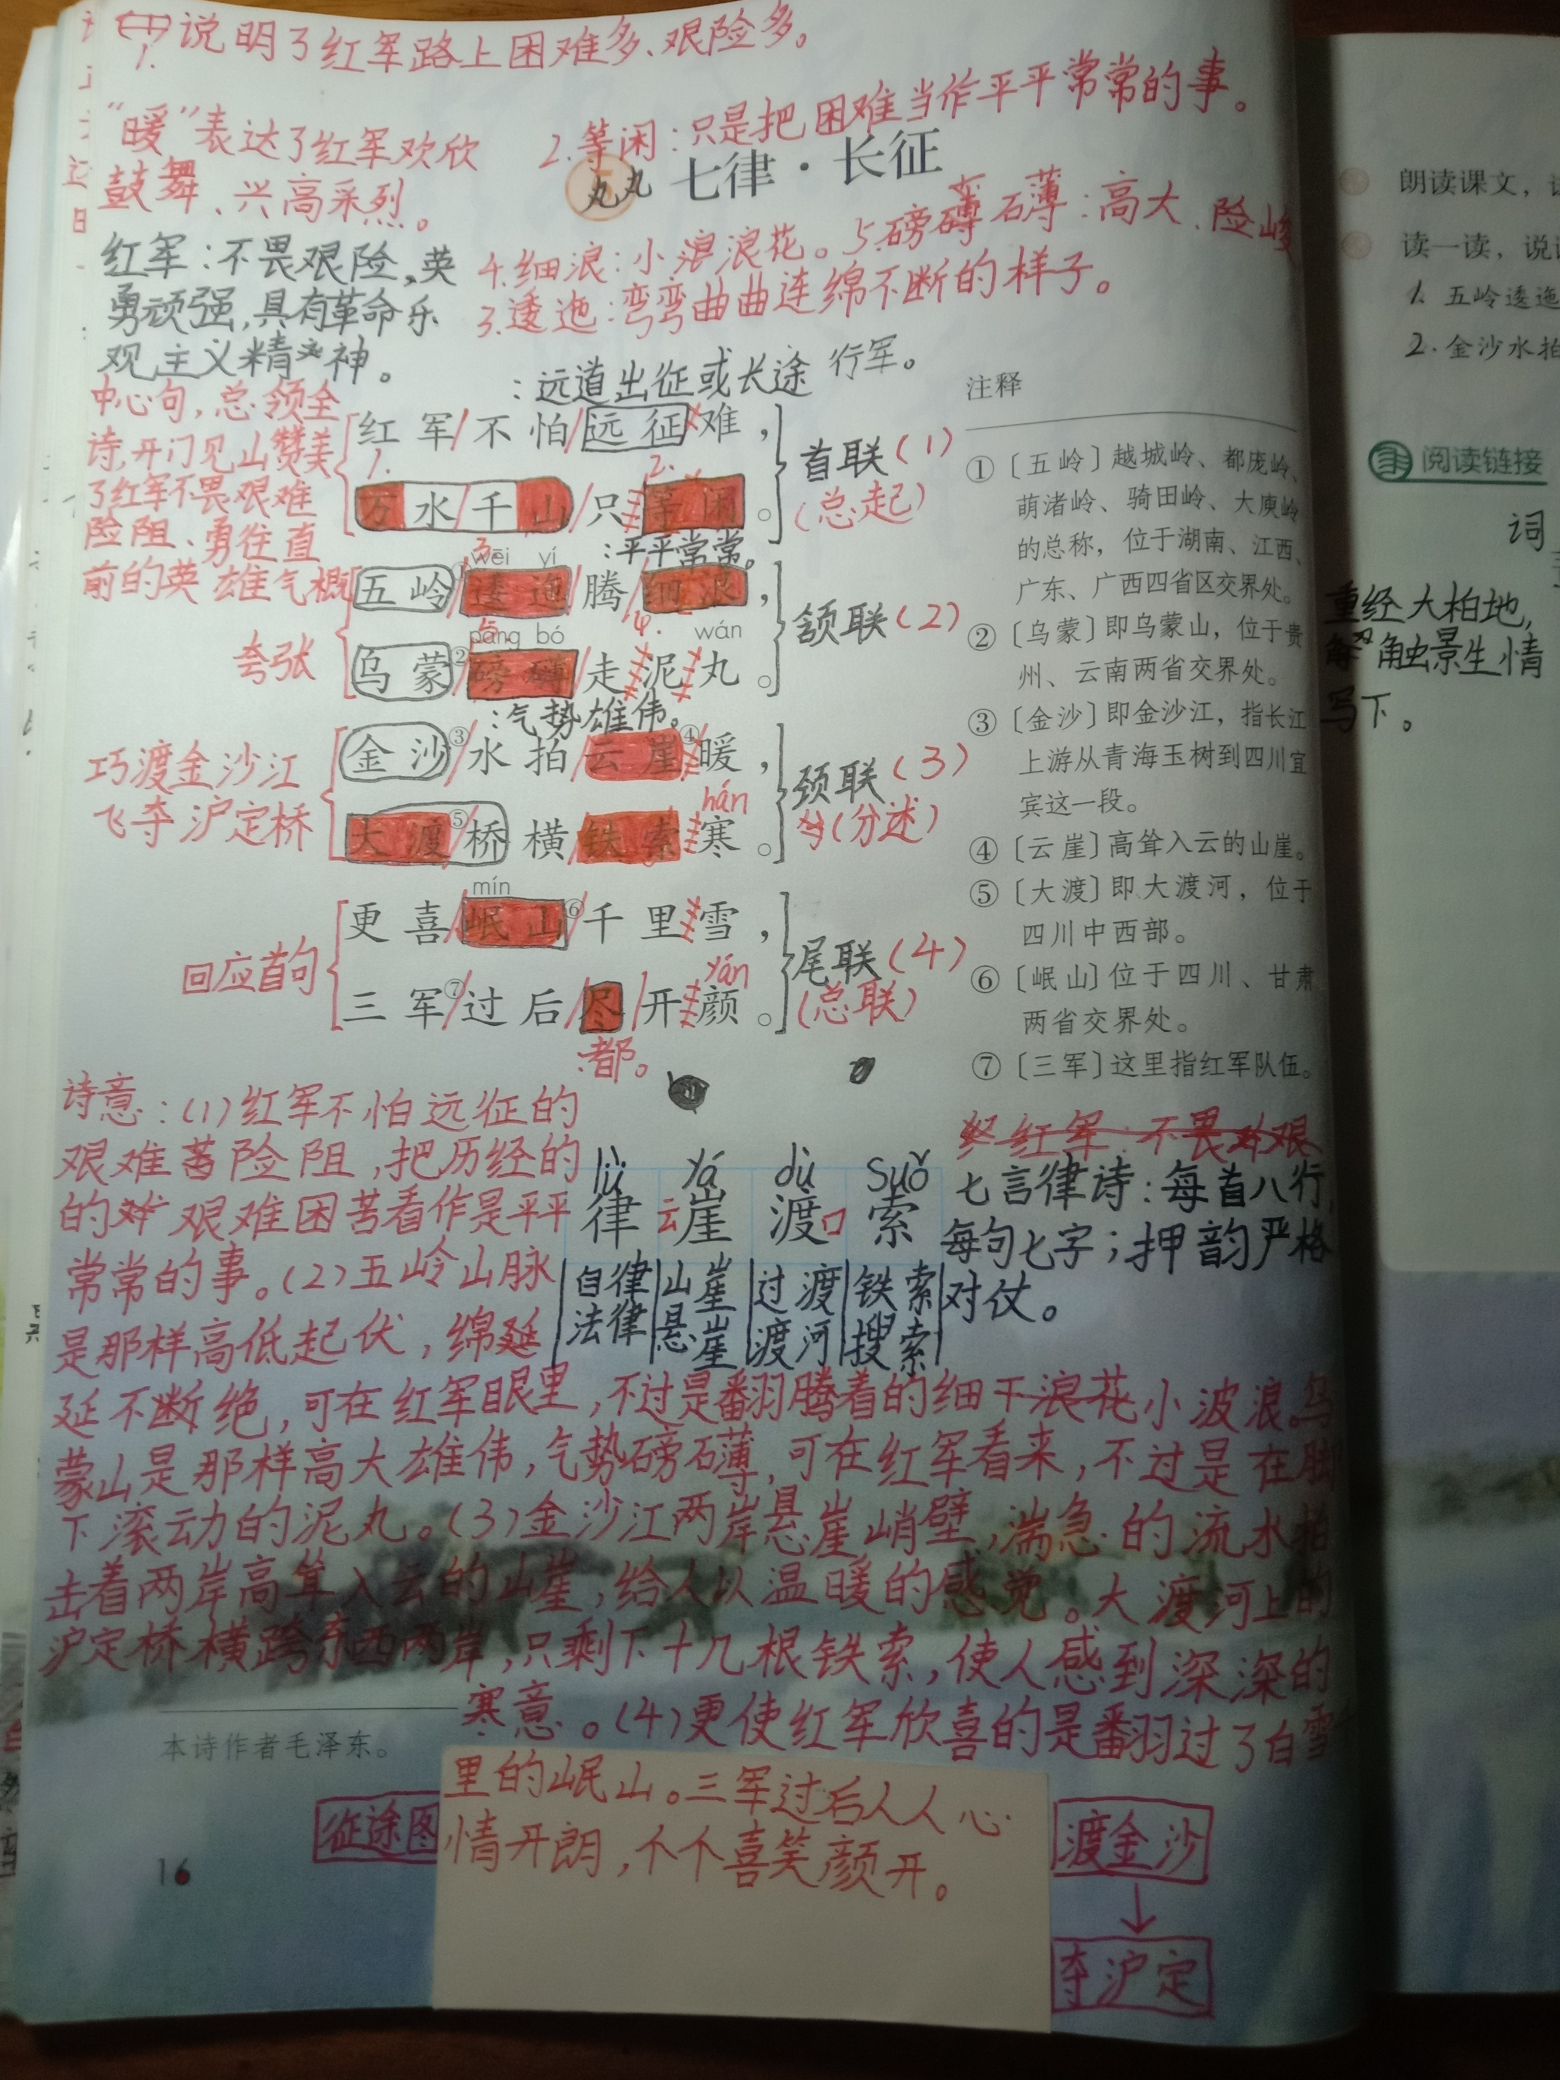 1.说明了红军路上困难多、艰险多。
“暖”表达了红军欢欣
鼓舞、兴高采烈。
2.等闲:只是把困难当作平平常常的事。
丸丸
七律·长征
红军:不畏艰险,英
勇顽强,具有革命乐
观主义精神。
4.细浪:小浪浪花。5.磅礴:高大、险峻
3.逶迤:弯弯曲曲连绵不断的样子。
:远道出征或长途行军。
中心句,总领全
诗,开门见山赞美
了红军不畏艰难
险阻、勇往直
前的英雄气概
红军/不怕/远征难,
1.
2.
万水/千山/只等闲。
首联(1)
(总起)
:平平常常。
3.
wēi yí
五岭①逶迤腾细浪,
5.
4.
páng bó
wán
乌蒙②磅礴走泥丸。
颔联(2)
夸张
:气势雄伟。
金沙③/水拍/云崖④暖,
hán
大渡⑤桥横铁索寒。
颈联(3)
(分述)
巧渡金沙江
飞夺沪定桥
mín
更喜/岷山⑥/千里雪,
yán
三军⑦/过后/尽/开颜。
尾联(4)
(总联)
回应首句
:都。
注释
①〔五岭〕越城岭、都庞岭、
萌渚岭、骑田岭、大庾岭
的总称,位于湖南、江西、
广东、广西四省区交界处。
②〔乌蒙〕即乌蒙山,位于贵
州、云南两省交界处。
③〔金沙〕即金沙江,指长江
上游从青海玉树到四川宜
宾这一段。
④〔云崖〕高耸入云的山崖。
⑤〔大渡〕即大渡河,位于
四川中西部。
⑥〔岷山〕位于四川、甘肃
两省交界处。
⑦〔三军〕这里指红军队伍。
诗意:(1)红军不怕远征的
艰难险阻,把历经的
的艰难困苦看作是平平
常常的事。(2)五岭山脉
是那样高低起伏,绵延
lǜ yá dù suǒ
律 云崖 渡口 索
自律 山崖 过渡 铁索
法律 悬崖 渡河 搜索
红军:不畏艰
七言律诗:每首八行,
每句七字;押韵严格
对仗。
延不断绝,可在红军眼里,不过是翻腾着的细干浪花小波浪。乌
蒙山是那样高大雄伟,气势磅礴,可在红军看来,不过是在脚
下滚动的泥丸。(3)金沙江两岸悬崖峭壁,湍急的流水拍
击着两岸高耸入云的山崖,给人以温暖的感觉。大渡河上的
沪定桥横跨东西两岸,只剩下十几根铁索,使人感到深深的
寒意。(4)更使红军欣喜的是翻过了白雪
里的岷山。三军过后人人心
情开朗,个个喜笑颜开。
本诗作者毛泽东。
16
征途图
渡金沙
夺沪定
朗读课文,
读一读,说
1.五岭逶迤
2.金沙水拍
阅读链接
词
重经大柏地,
触景生情
写下。